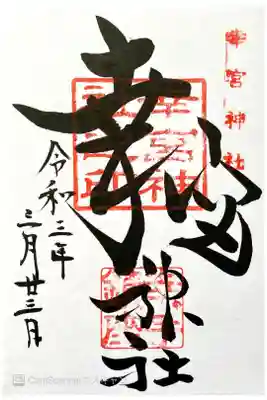 幸宮神社
幸宮神社
令和三年
三月廿三日
CamScanner